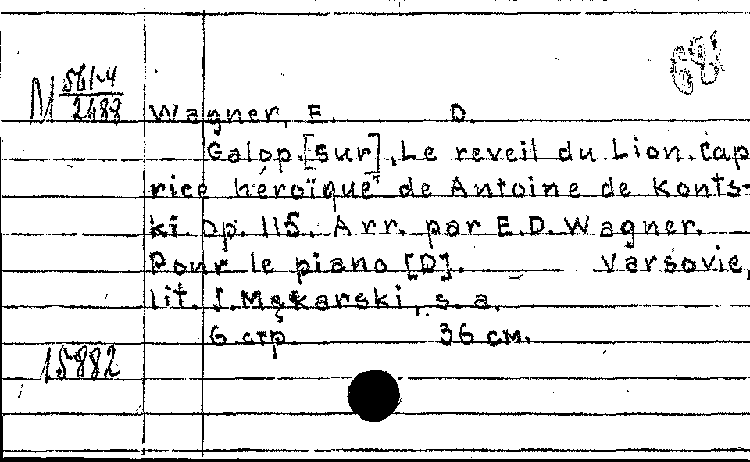 681
M 561-4
2488
Wagner, E. D.
Galop. [sur] „Le reveil du Lion. Cap
rice héroïque" de Antoine de Konts-
ki Op. 115. Arr. par E.D. Wagner.
Pour le piano [D]. Varsovie,
lit. J. Mękarski, s. a.
6 стр. 36 см.
15882